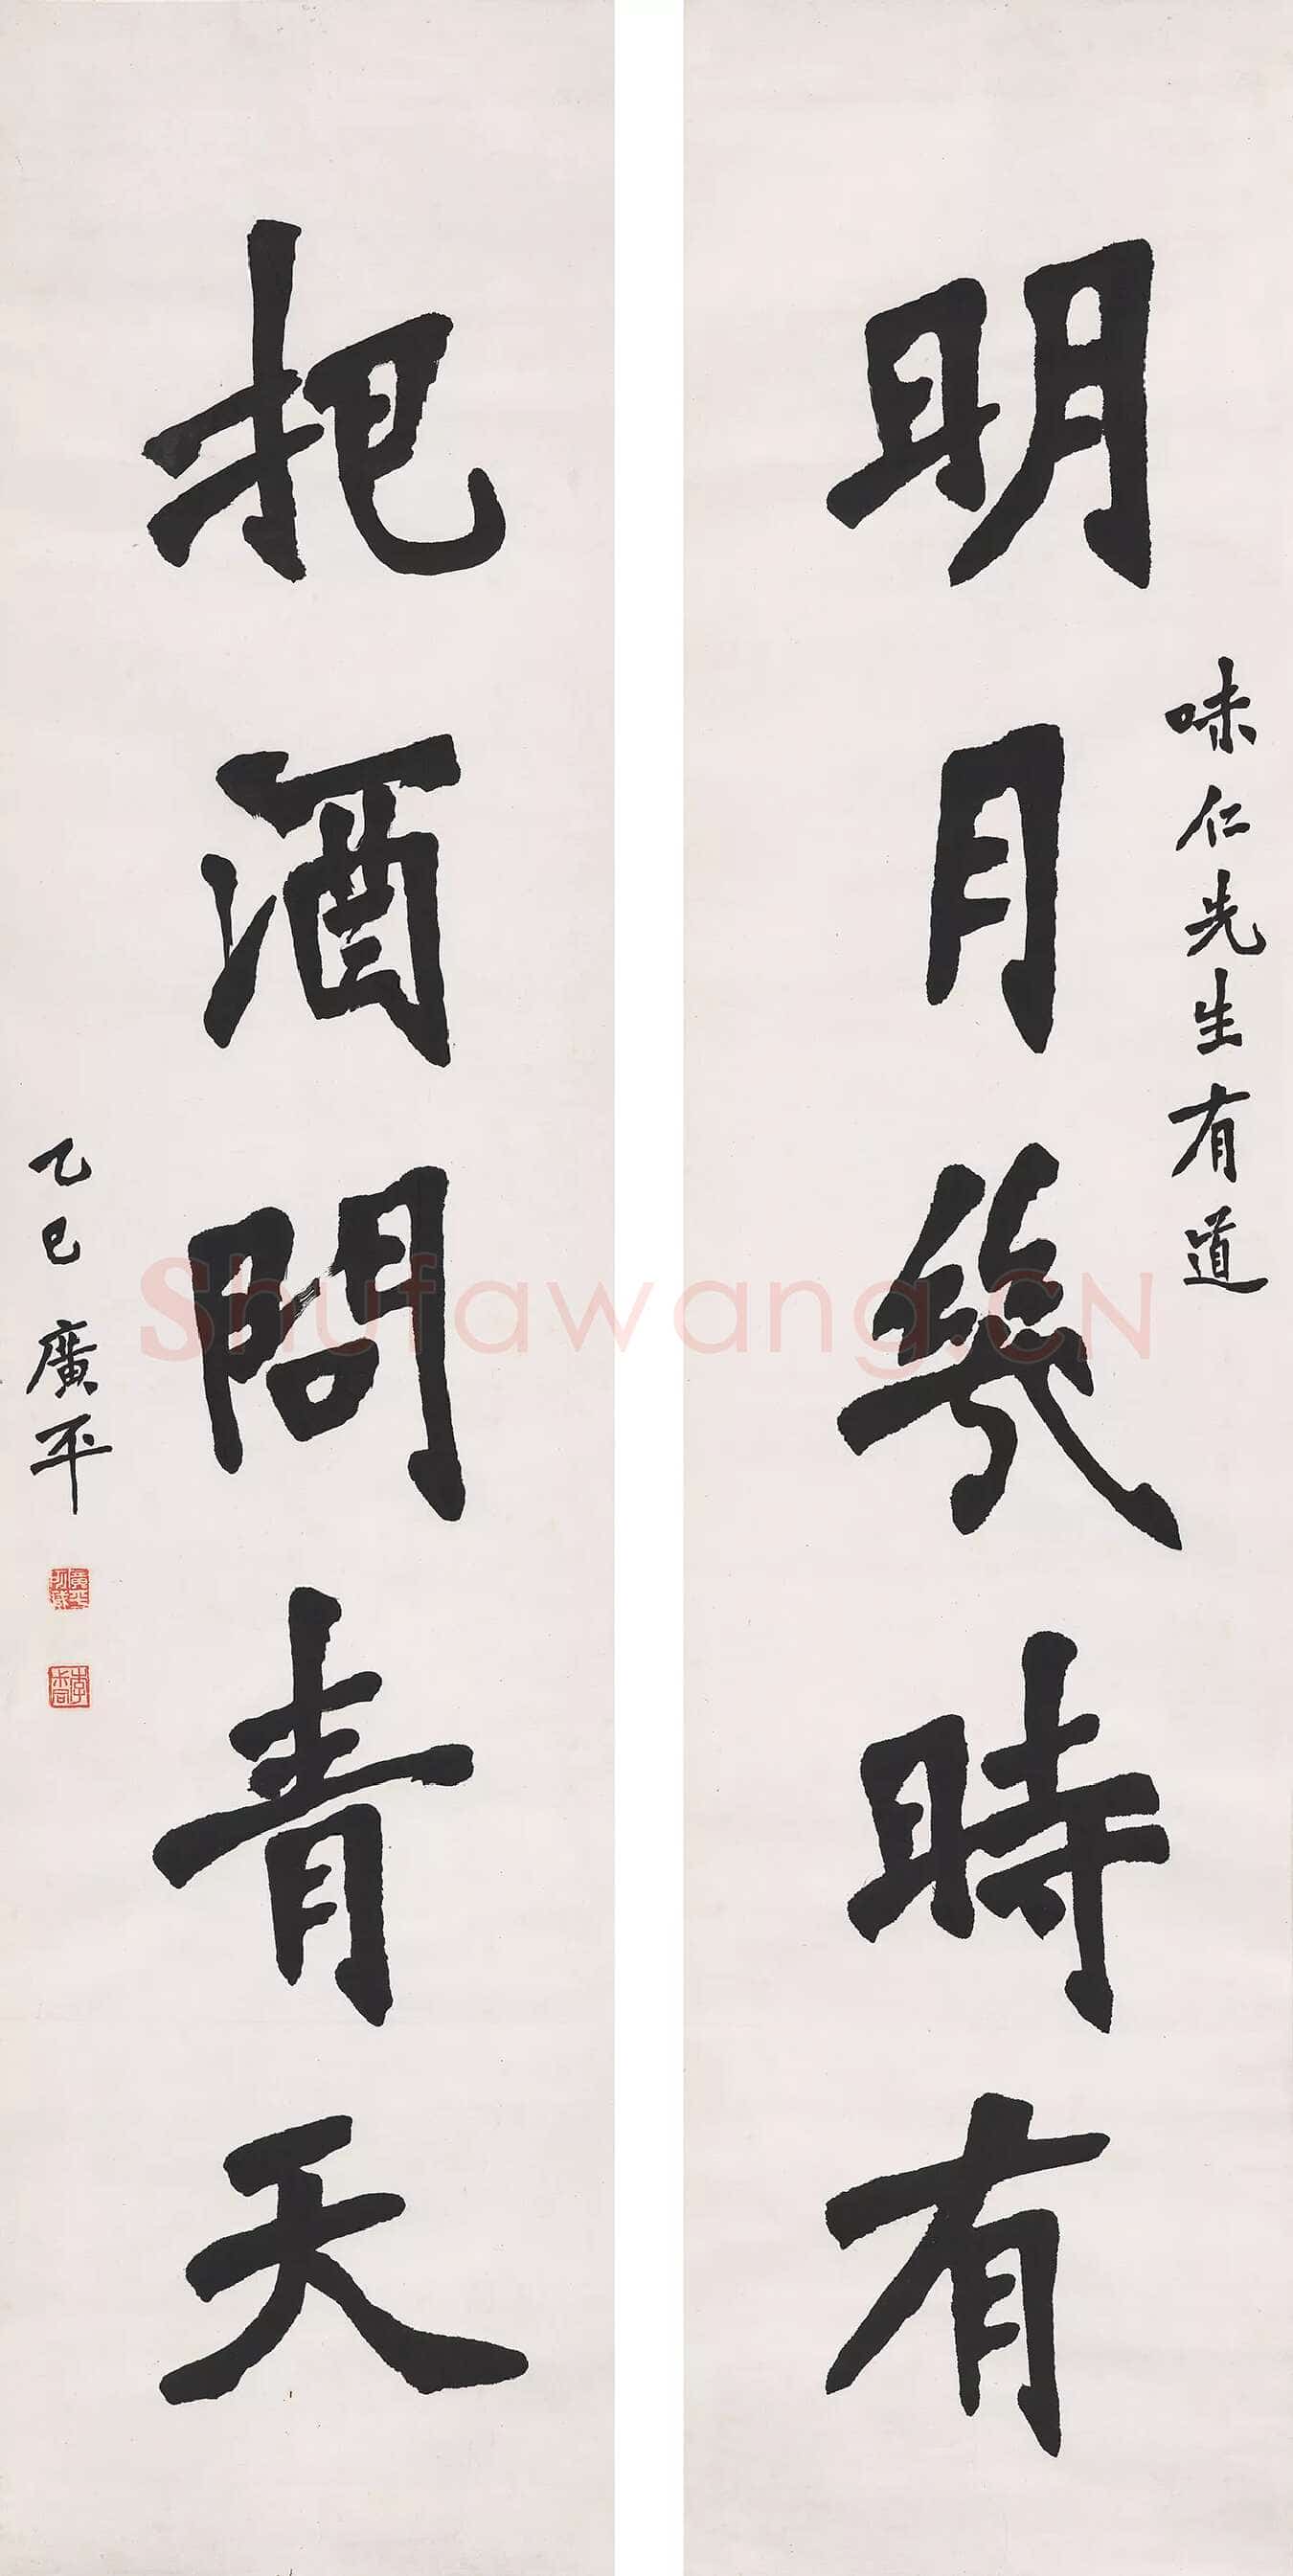 明月幾時有
味仁先生有道
把酒問青天
乙巳 廣平
Shufawang.CN